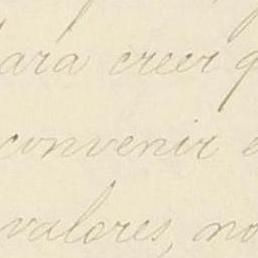 para creer q
convenir e
valores, no